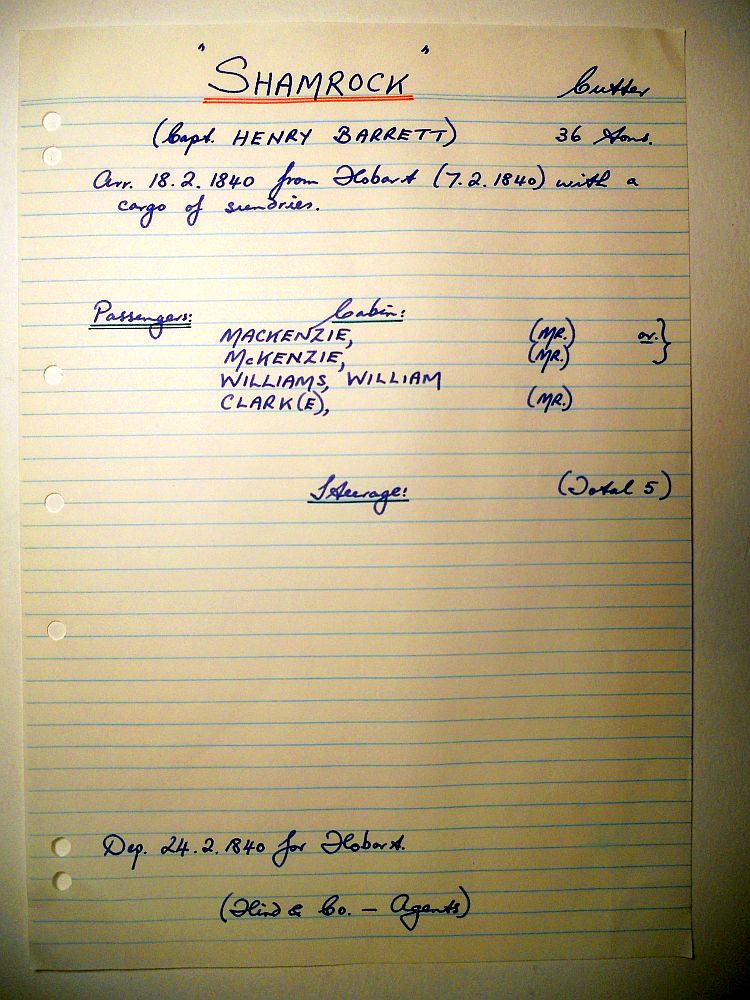 "SHAMROCK" Cutter
(Capt. HENRY BARRETT) 36 tons.
Arr. 18.2.1840 from Hobart (7.2.1840) with a
cargo of sundries.
Passengers: Cabin:
MACKENZIE, (MR.) or. }
McKENZIE, (MR.)
WILLIAMS, WILLIAM
CLARK(E), (MR.)
Steerage: (Total 5)
Dep. 24.2.1840 for Hobart.
(Hind & Co. – Agents)